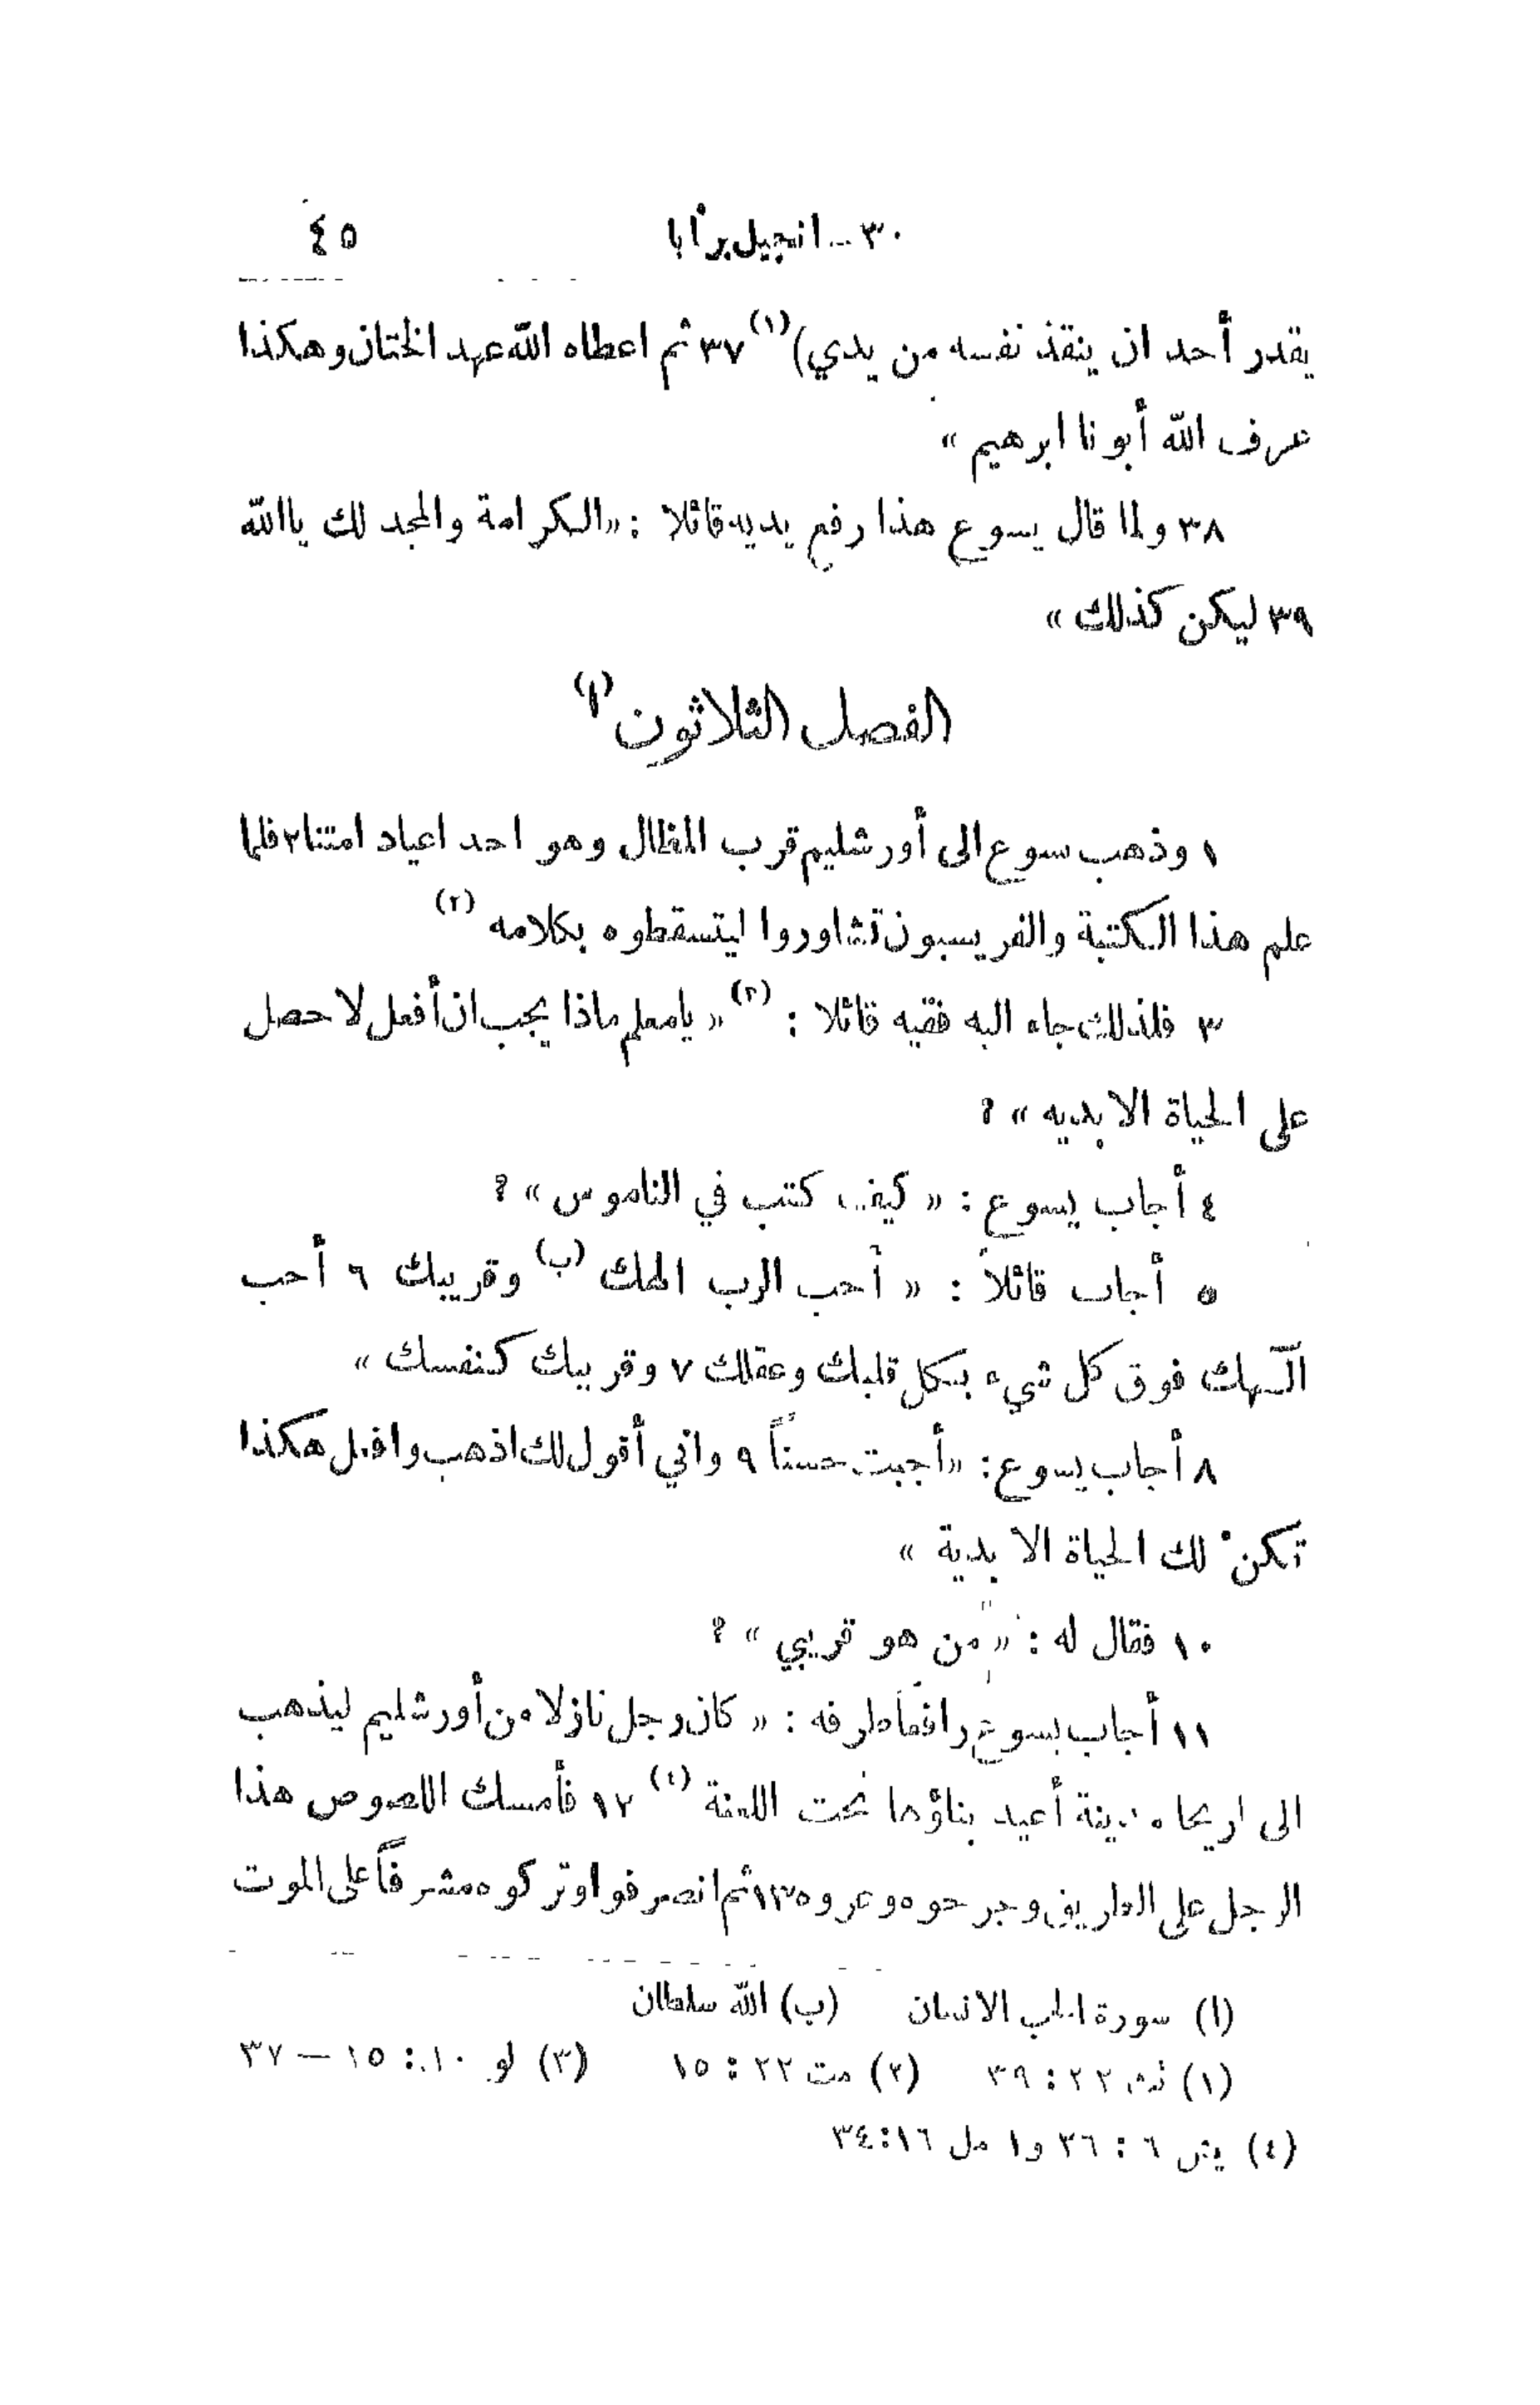 ٣٠ – انجيل برنابا ٤٥
يقدر أحد ان ينقذ نفسه من يدي) (١) ٣٧ ثم اعطاه الله عهد الختان وهكذا
عرف الله أبونا ابرهيم »
٣٨ ولما قال يسوع هذا رفع يديه قائلا : « الكرامة والمجد لك ياالله
٣٩ ليكن كذلك »
الفصل الثلاثون (ا)
١ وذهب يسوع الى أورشليم قرب المظال وهو احد اعياد امتنا ٢ فلما
علم هذا الكتبة والفريسيون تشاوروا ليتسقطوه بكلامه (٢)
٣ فلذلك جاء اليه فقيه قائلا : (٣) « يامعلم ماذا يجب ان أفعل لاحصل
على الحياة الابديه » ؟
٤ أجاب يسوع : « كيف كتب في الناموس » ؟
٥ أجاب قائلاً : « أحب الرب الهك (ب) وقريبك ٦ أحب
الٓهك فوق كل شيء بكل قلبك وعقلك ٧ وقريبك كنفسك »
٨ أجاب يسوع : « أجبت حسناً ٩ واني أقول لك اذهب وافعل هكذا
تكنْ لك الحياة الابدية »
١٠ فقال له : « من هو قريبي » ؟
١١ أجاب يسوع رافعاً طرفه : « كان رجل نازلا من أورشليم ليذهب
الى اريحا مدينة أعيد بناؤها تحت اللعنة (٤) ١٢ فأمسك اللصوص هذا
الرجل على الطريق وجرحوه وعروه ١٣ ثم انصرفوا وتركوه مشرفاً على الموت
(ا) سورة الحب الانسان (ب) الله سلطان
(١) تث ٢٢ : ٣٩ (٢) مت ٢٢ : ١٥ (٣) لو ١٠ : ١٥ – ٣٧
(٤) يش ٦ : ٢٦ و ١ مل ١٦ : ٣٤